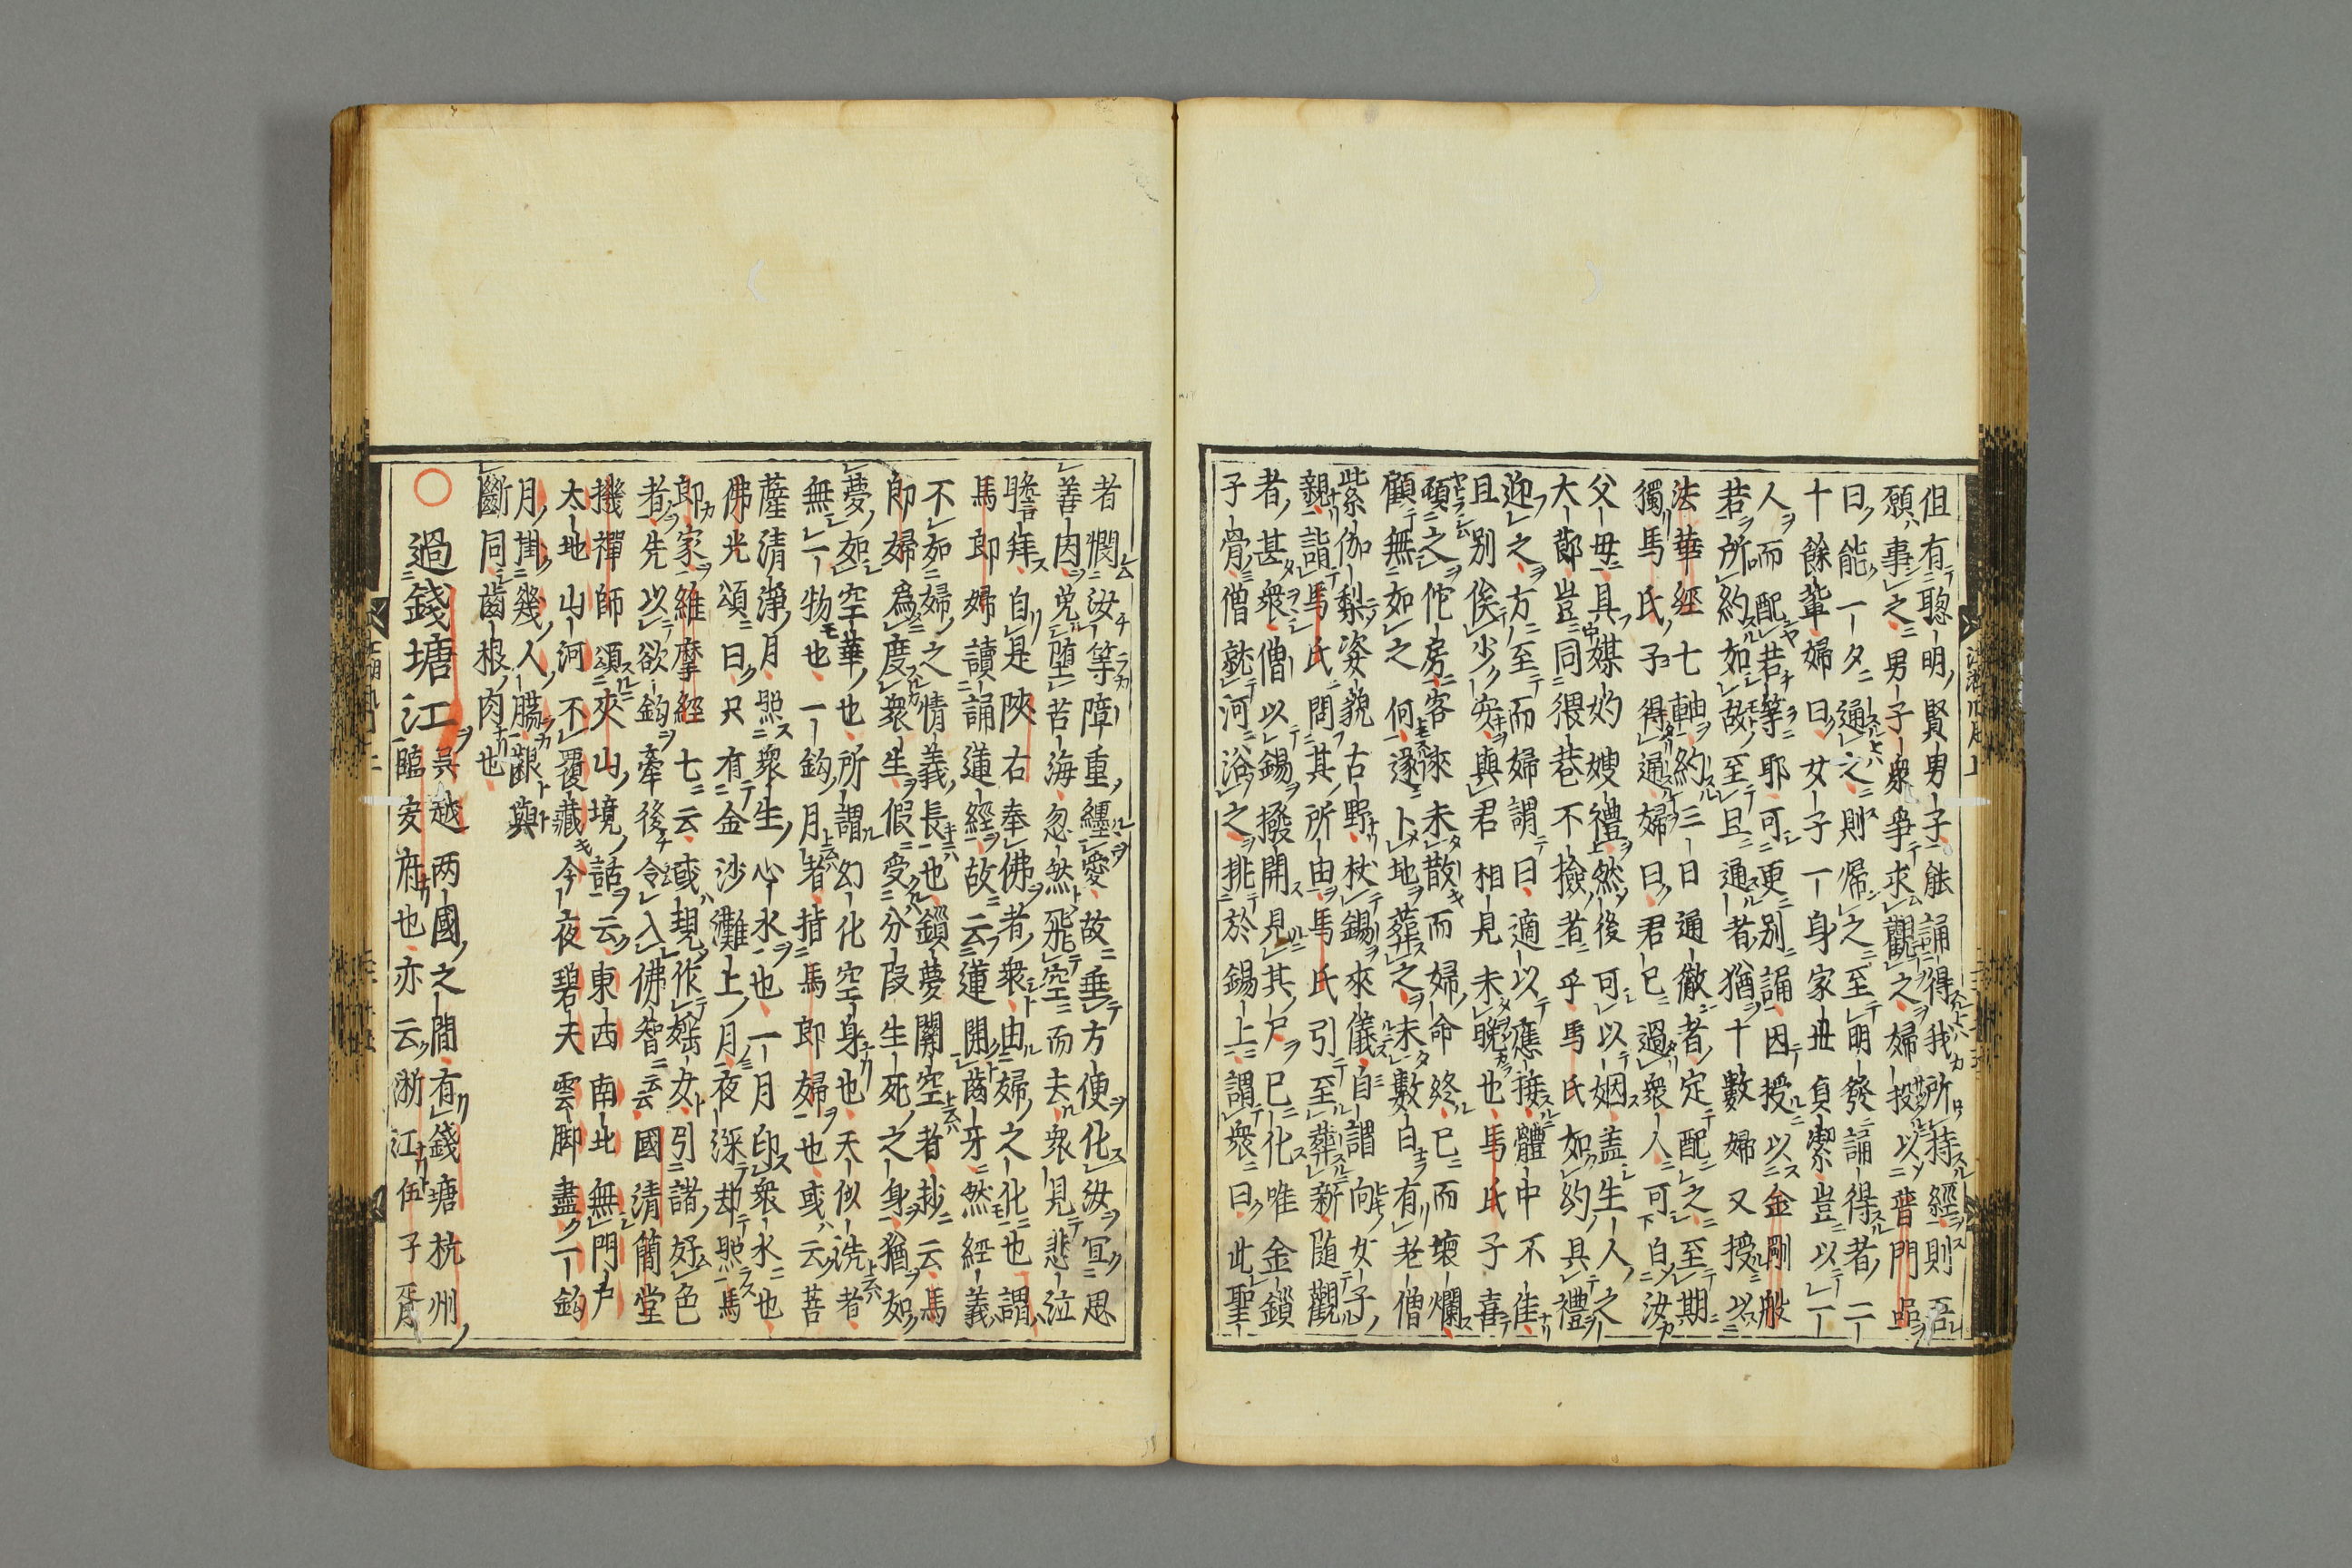 但有聰明賢男子能誦得我所持經則吾
願事之男子衆爭求觀之婦授以普門品
曰能一夕通之則帰之至明發誦得者二
十餘輩婦曰女子一身家世貞潔豈以一
人而配若等耶可更別誦因授以金剛般
若所約如故至旦通者猶十數婦又授以
法華經七軸約三日通徹者定配之至期
獨馬氏子得通婦曰君已過衆人可白汝
父母具媒妁嫂禮然後可以姻盖生人之
大節豈同猥巷不撿者乎馬氏如約具禮
迎之方至而婦謂曰適以應接體中不佳
且別俟少安與君相見未晩也馬氏子喜
頓之佗房客來未散而婦命終已而壞爛
顧無如之何遂卜地葬之未數日有老僧
紫伽梨姿貌古野杖錫來儀自謂向女子
親詣馬氏問其所由馬氏引至葬所隨觀
者甚衆僧以錫撥開見其尸已化唯金鎖
子骨僧就河浴之挑於錫上謂衆曰此聖
者憫汝等障重纏愛故垂方便化汝宜思
善因免堕苦海忽然飛空而去衆見悲泣
瞻拜自是陝右奉佛者衆由婦之化也謂
馬郎婦讀誦蓮經故云蓮開齒牙然經義
不如婦之情義長也鎖夢關空者抄云馬
郎婦爲度衆生假受分段生死之身猶如
夢如空華也所謂幻化空身也天似洗者
無一物也一鈎月者指馬郎婦也或云菩
薩清淨月照衆生心水也一月印衆水也
佛光頌曰只有金沙灘上月夜深却照馬
郎家維摩經七云或現作婬女引諸好色
者先以欲鈎牽後令入佛智云國清簡堂
機禪師頌夾山境話云東西南北無門戸
太地山河不覆藏今夜碧天雲脚盡一鈎
月掛幾人膓齦與
斷同齒根肉也
過錢塘江
吳越兩國之間有錢塘杭州
臨安府也亦云浙江伍子胥